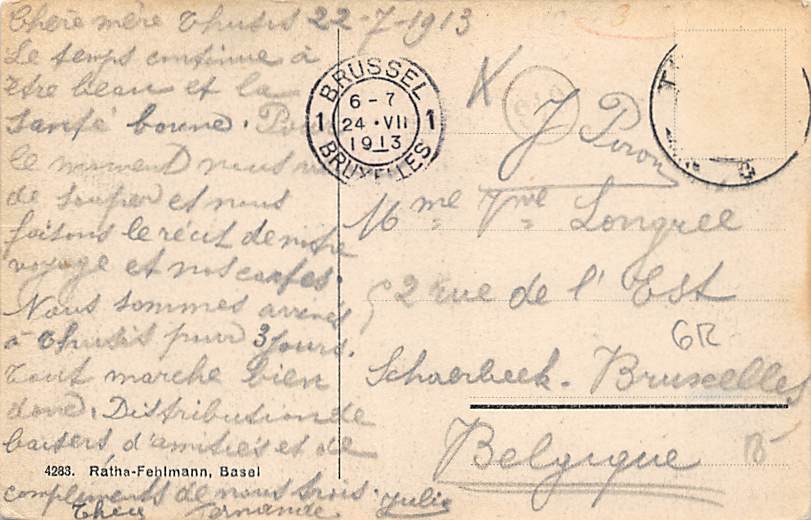 Chère mère Thusis 22-7-1913
Le temps continue à
être beau et la
santé bonne. Pour
le moment nous
de souper et nous
faisons le récit de notre
voyage et nos cartes.
Nous sommes arrivés
à Thusis pour 3 jours.
Tout marche bien
donc. Distribution de
baisers, d'amitiés et de
compléments de nous trois. Julie
Fernande
4283. Ratha-Fehlmann, Basel
BRUSSEL
6-7
1 24 · VII 1
1913
BRUXELLES
J Piron
Mme Vve Longrée
2 rue de l'Est
6R
Schaerbeek - Bruxelles
Belgique